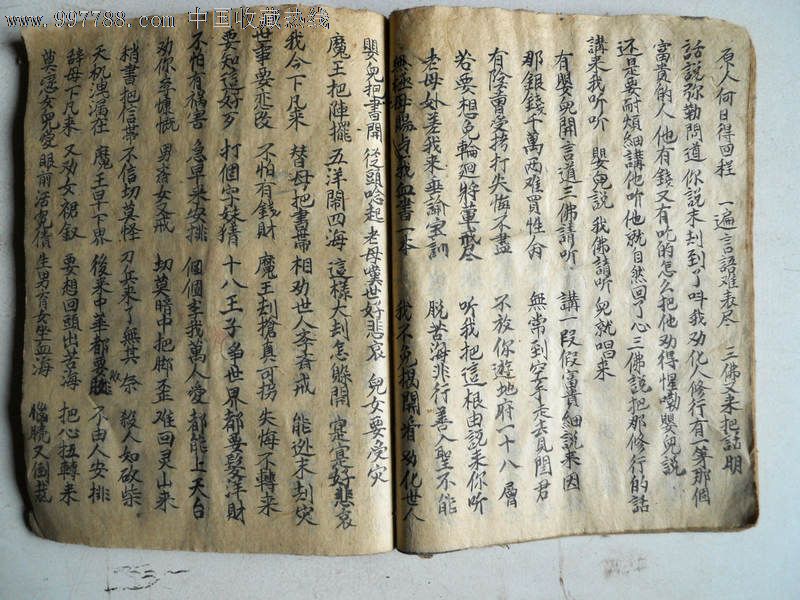 www.997788.com 中国收藏热线
原人何日得回程 一遍言語难表尽 三佛又来把話明
話說弥勒問道 你說末刦到了叫我劝化人修行有一等那個
富貴的人 他有錢又有吃的怎么把他劝得惺嘞嬰兒說
还是要耐煩細講他听他就自然回了心三佛說把那修行的話
講来我听听 嬰兒說 我佛請听 兒就唱来
有嬰兒開言道三佛請听 講一段假富貴細說来因
那銀錢千萬両难買性命 無常到空手走去見閻君
有陰曹受拷打失悔不盡 不放你遊地府一十八層
若要想免輪廻将葷戒尽 听我把這根由說来你听
老母妙差我来垂諭宝訓 脫苦海非行善入聖不能
無極母賜与我血書一本 我不免揭開看劝化世人
嬰兒把書開 從頭唸起 老母嘆世好悲哀 兒女要受灾
魔王把陣擺 五洋鬧四海 這樣大刦怎躲開 寔寔好悲哀
我今下凡来 替母把書帶 相劝世人孝斉戒 能迯末刦灾
世事要恋改 不怕有錢財 魔王刦搶真可拐 失悔不轉来
要知這好歹 打個字妹猜 十八王子爭世界 都要發洋財
不怕有禍害 急早来安排 個個孝我萬人愛 都能上天台
劝你要慷慨 男斉女又戒 切莫暗中把脚歪 难回灵山来
稍書把信帯 不信切莫怪 刀兵来了無其奈 殺人如砍柴
天机洩漏在 魔王早下界 後来中華都要敗 不由人安排
辞母下凡来 又劝女裙釵 要想回頭出苦海 把心扭轉来
莫恋女兒愛 眼前活寃債 生男育女坐血海 臨脫又倒栽